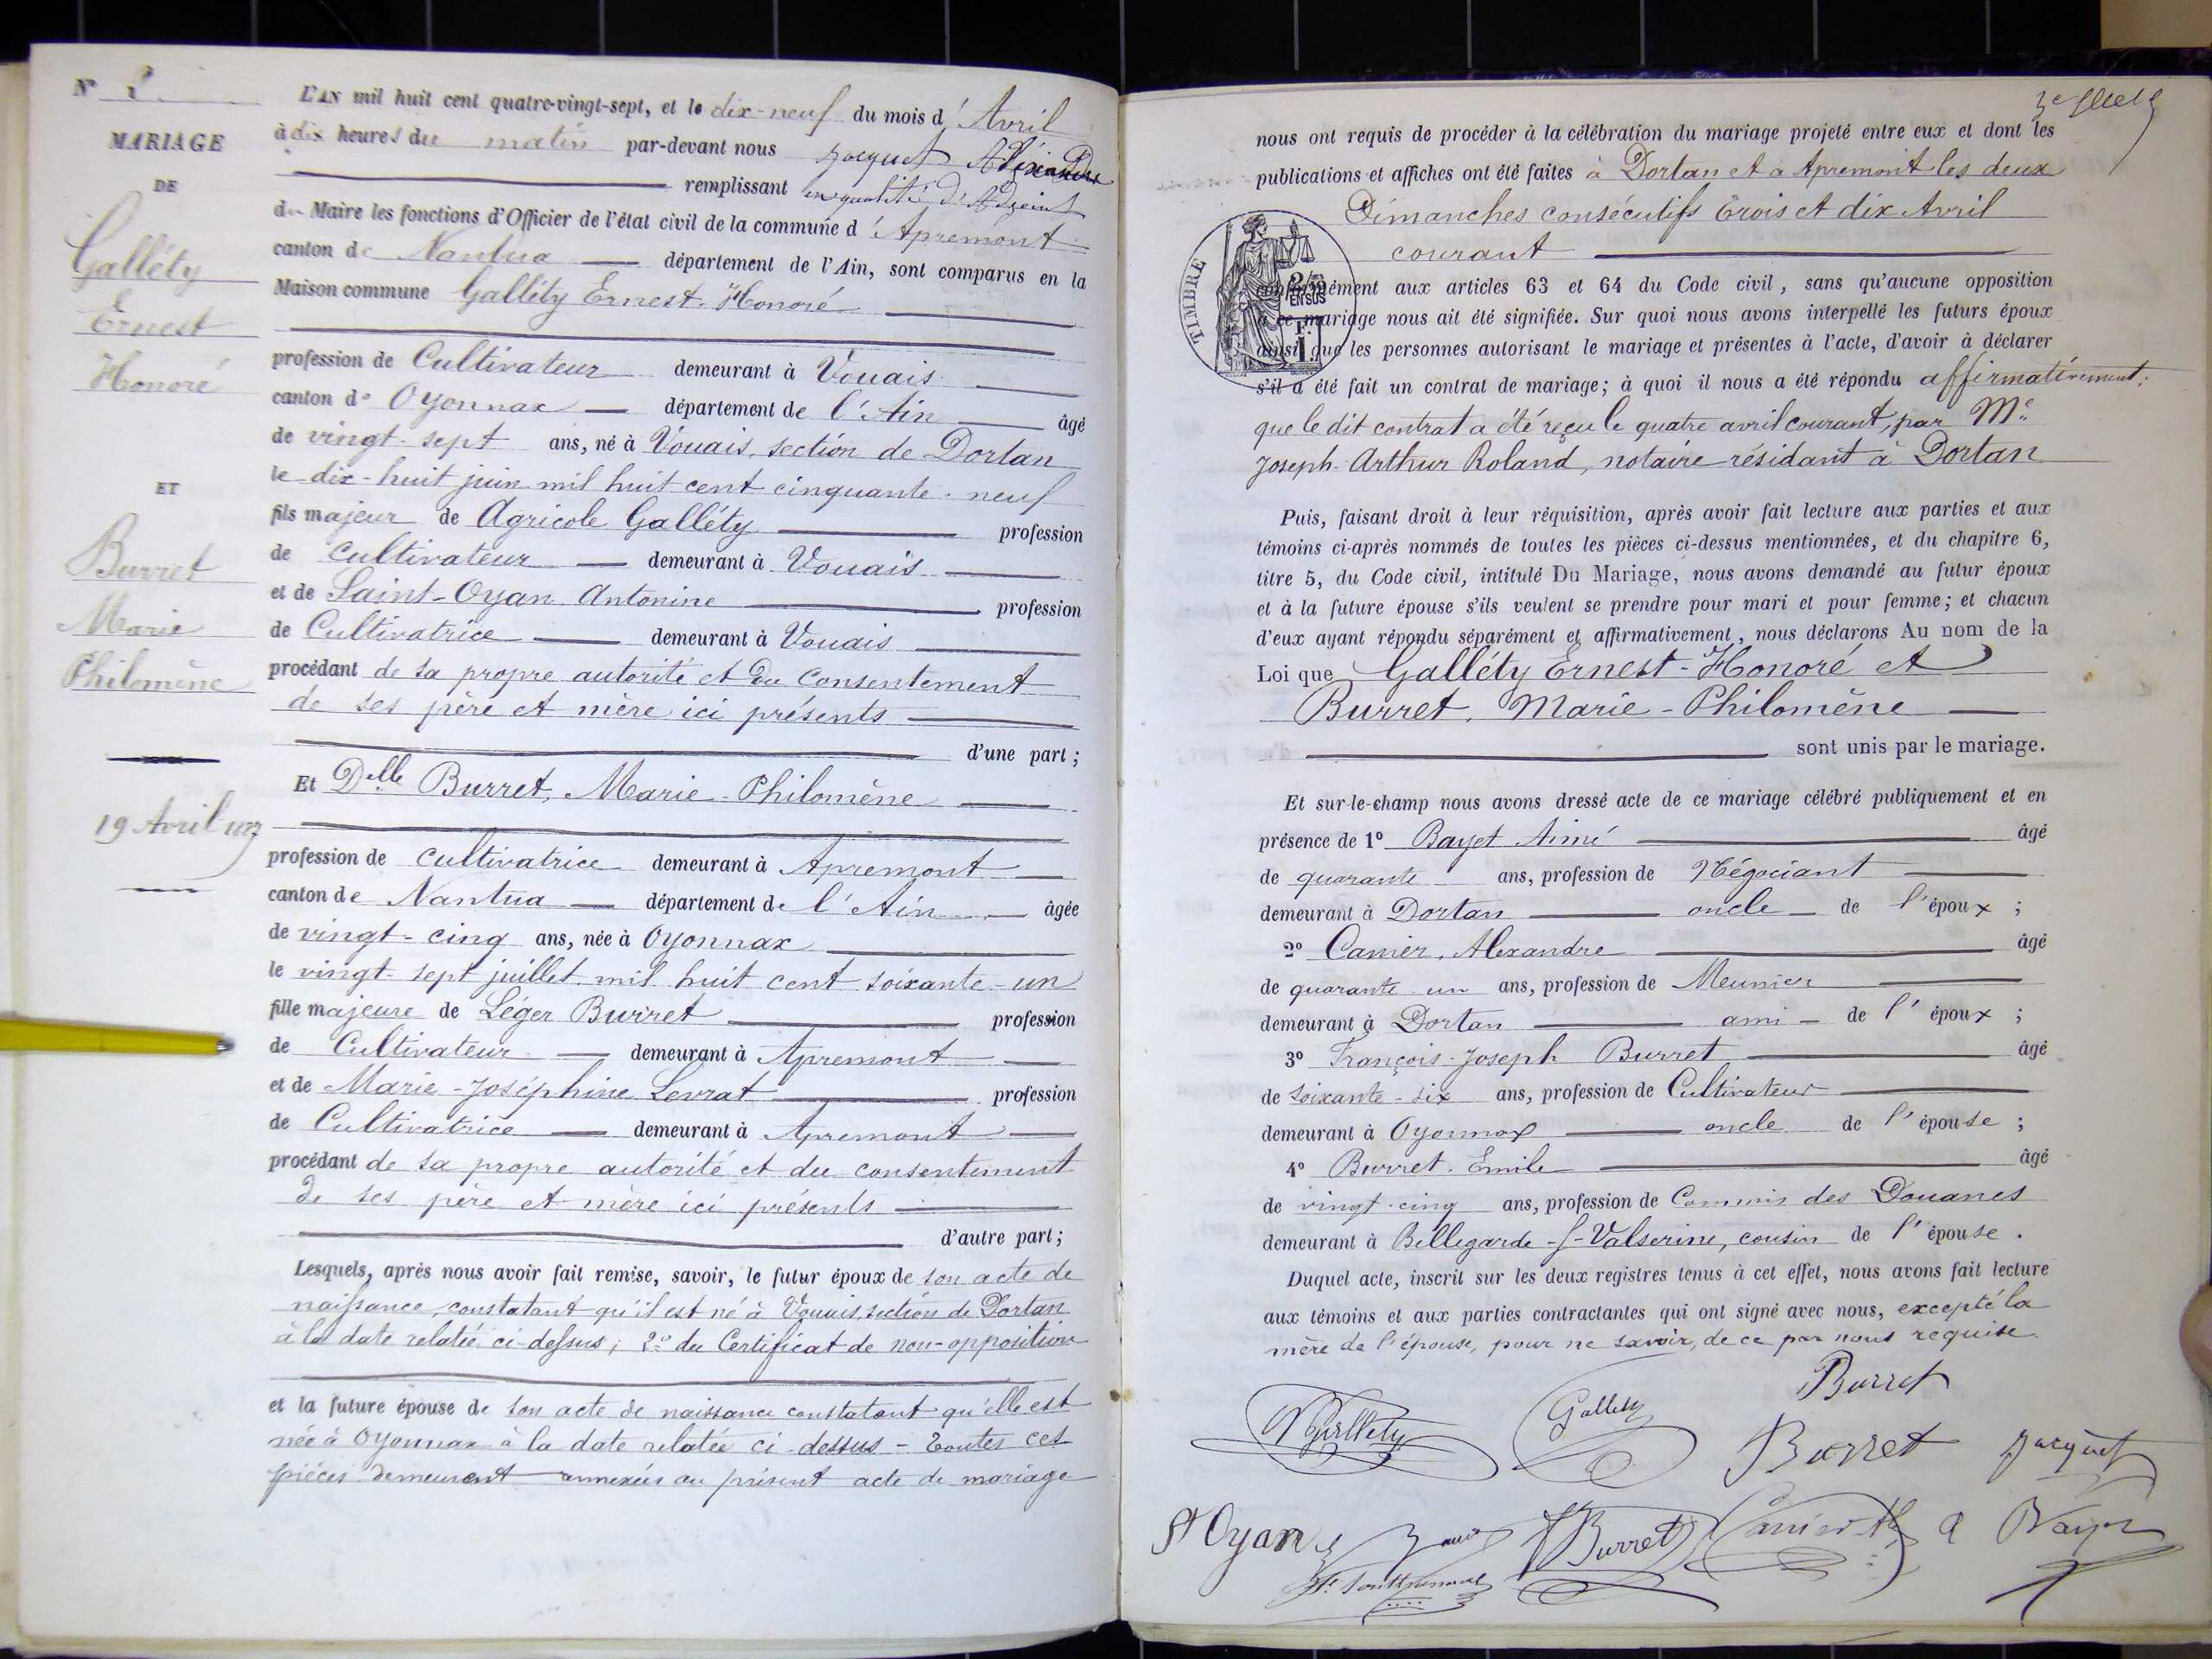 N° 2
MARIAGE
DE
Galléty
Ernest
Honoré
ET
Burret
Marie
Philomène
19 Avril 1887
L'AN mil huit cent quatre-vingt-sept, et le dix-neuf du mois d' Avril
à dix heures du matin par-devant nous Jacquet Alexandre
remplissant en qualité d'Adjoint
du Maire les fonctions d'Officier de l'état civil de la commune d' Apremont
canton de Nantua département de l'Ain, sont comparus en la
Maison commune Galléty Ernest-Honoré
profession de Cultivateur demeurant à Vouais
canton d' Oyonnax département de l'Ain âgé
de vingt-sept ans, né à Vouais, section de Dortan
le dix-huit juin mil huit cent cinquante-neuf
fils majeur de Agricole Galléty profession
de cultivateur demeurant à Vouais
et de Saint-Oyan Antonine profession
de Cultivatrice demeurant à Vouais
procédant de sa propre autorité et du consentement
de ses père et mère ici présents
d'une part ;
Et Delle Burret, Marie-Philomène
profession de cultivatrice demeurant à Apremont
canton de Nantua département de l'Ain âgée
de vingt-cinq ans, née à Oyonnax
le vingt-sept juillet mil huit cent soixante-un
fille majeure de Léger Burret profession
de Cultivateur demeurant à Apremont
et de Marie-Joséphine Levrat profession
de Cultivatrice demeurant à Apremont
procédant de sa propre autorité et du consentement
de ses père et mère ici présents
d'autre part ;
Lesquels, après nous avoir fait remise, savoir, le futur époux de son acte de
naissance, constatant qu'il est né à Vouais, section de Dortan
à la date relatée ci-dessus ; 2° du Certificat de non-opposition
et la future épouse de son acte de naissance constatant qu'elle est
née à Oyonnax à la date relatée ci-dessus - Toutes ces
pièces demeurent annexées au présent acte de mariage
nous ont requis de procéder à la célébration du mariage projeté entre eux et dont les
publications et affiches ont été faites à Dortan et à Apremont les deux
Dimanches consécutifs trois et dix Avril
courant
TIMBRE
2/10
EN SUS
1 F.
conformément aux articles 63 et 64 du Code civil, sans qu'aucune opposition
à ce mariage nous ait été signifiée. Sur quoi nous avons interpellé les futurs époux
ainsi que les personnes autorisant le mariage et présentes à l'acte, d'avoir à déclarer
s'il a été fait un contrat de mariage ; à quoi il nous a été répondu affirmativement ;
que le dit contrat a été reçu le quatre avril courant, par Me
Joseph-Arthur Roland, notaire résidant à Dortan
Puis, faisant droit à leur réquisition, après avoir fait lecture aux parties et aux
témoins ci-après nommés de toutes les pièces ci-dessus mentionnées, et du chapitre 6,
titre 5, du Code civil, intitulé Du Mariage, nous avons demandé au futur époux
et à la future épouse s'ils veulent se prendre pour mari et pour femme ; et chacun
d'eux ayant répondu séparément et affirmativement, nous déclarons Au nom de la
Loi que Galléty Ernest-Honoré et
Burret, Marie-Philomène
sont unis par le mariage.
Et sur-le-champ nous avons dressé acte de ce mariage célébré publiquement et en
présence de 1° Bayet Aimé âgé
de quarante ans, profession de Négociant
demeurant à Dortan oncle de l'époux ;
2° Canier, Alexandre âgé
de quarante un ans, profession de Meunier
demeurant à Dortan ami de l'époux ;
3° François-Joseph Burret âgé
de soixante-six ans, profession de Cultivateur
demeurant à Oyonnax oncle de l'épouse ;
4° Burret Emile âgé
de vingt-cinq ans, profession de Commis des Douanes
demeurant à Bellegarde-s-Valserine, cousin de l'épouse.
Duquel acte, inscrit sur les deux registres tenus à cet effet, nous avons fait lecture
aux témoins et aux parties contractantes qui ont signé avec nous, excepté la
mère de l'épouse, pour ne savoir, de ce par nous requise.
Burret
Galléty Gallety Burret Jacquet
St Oyan Burret Canier A Bayet